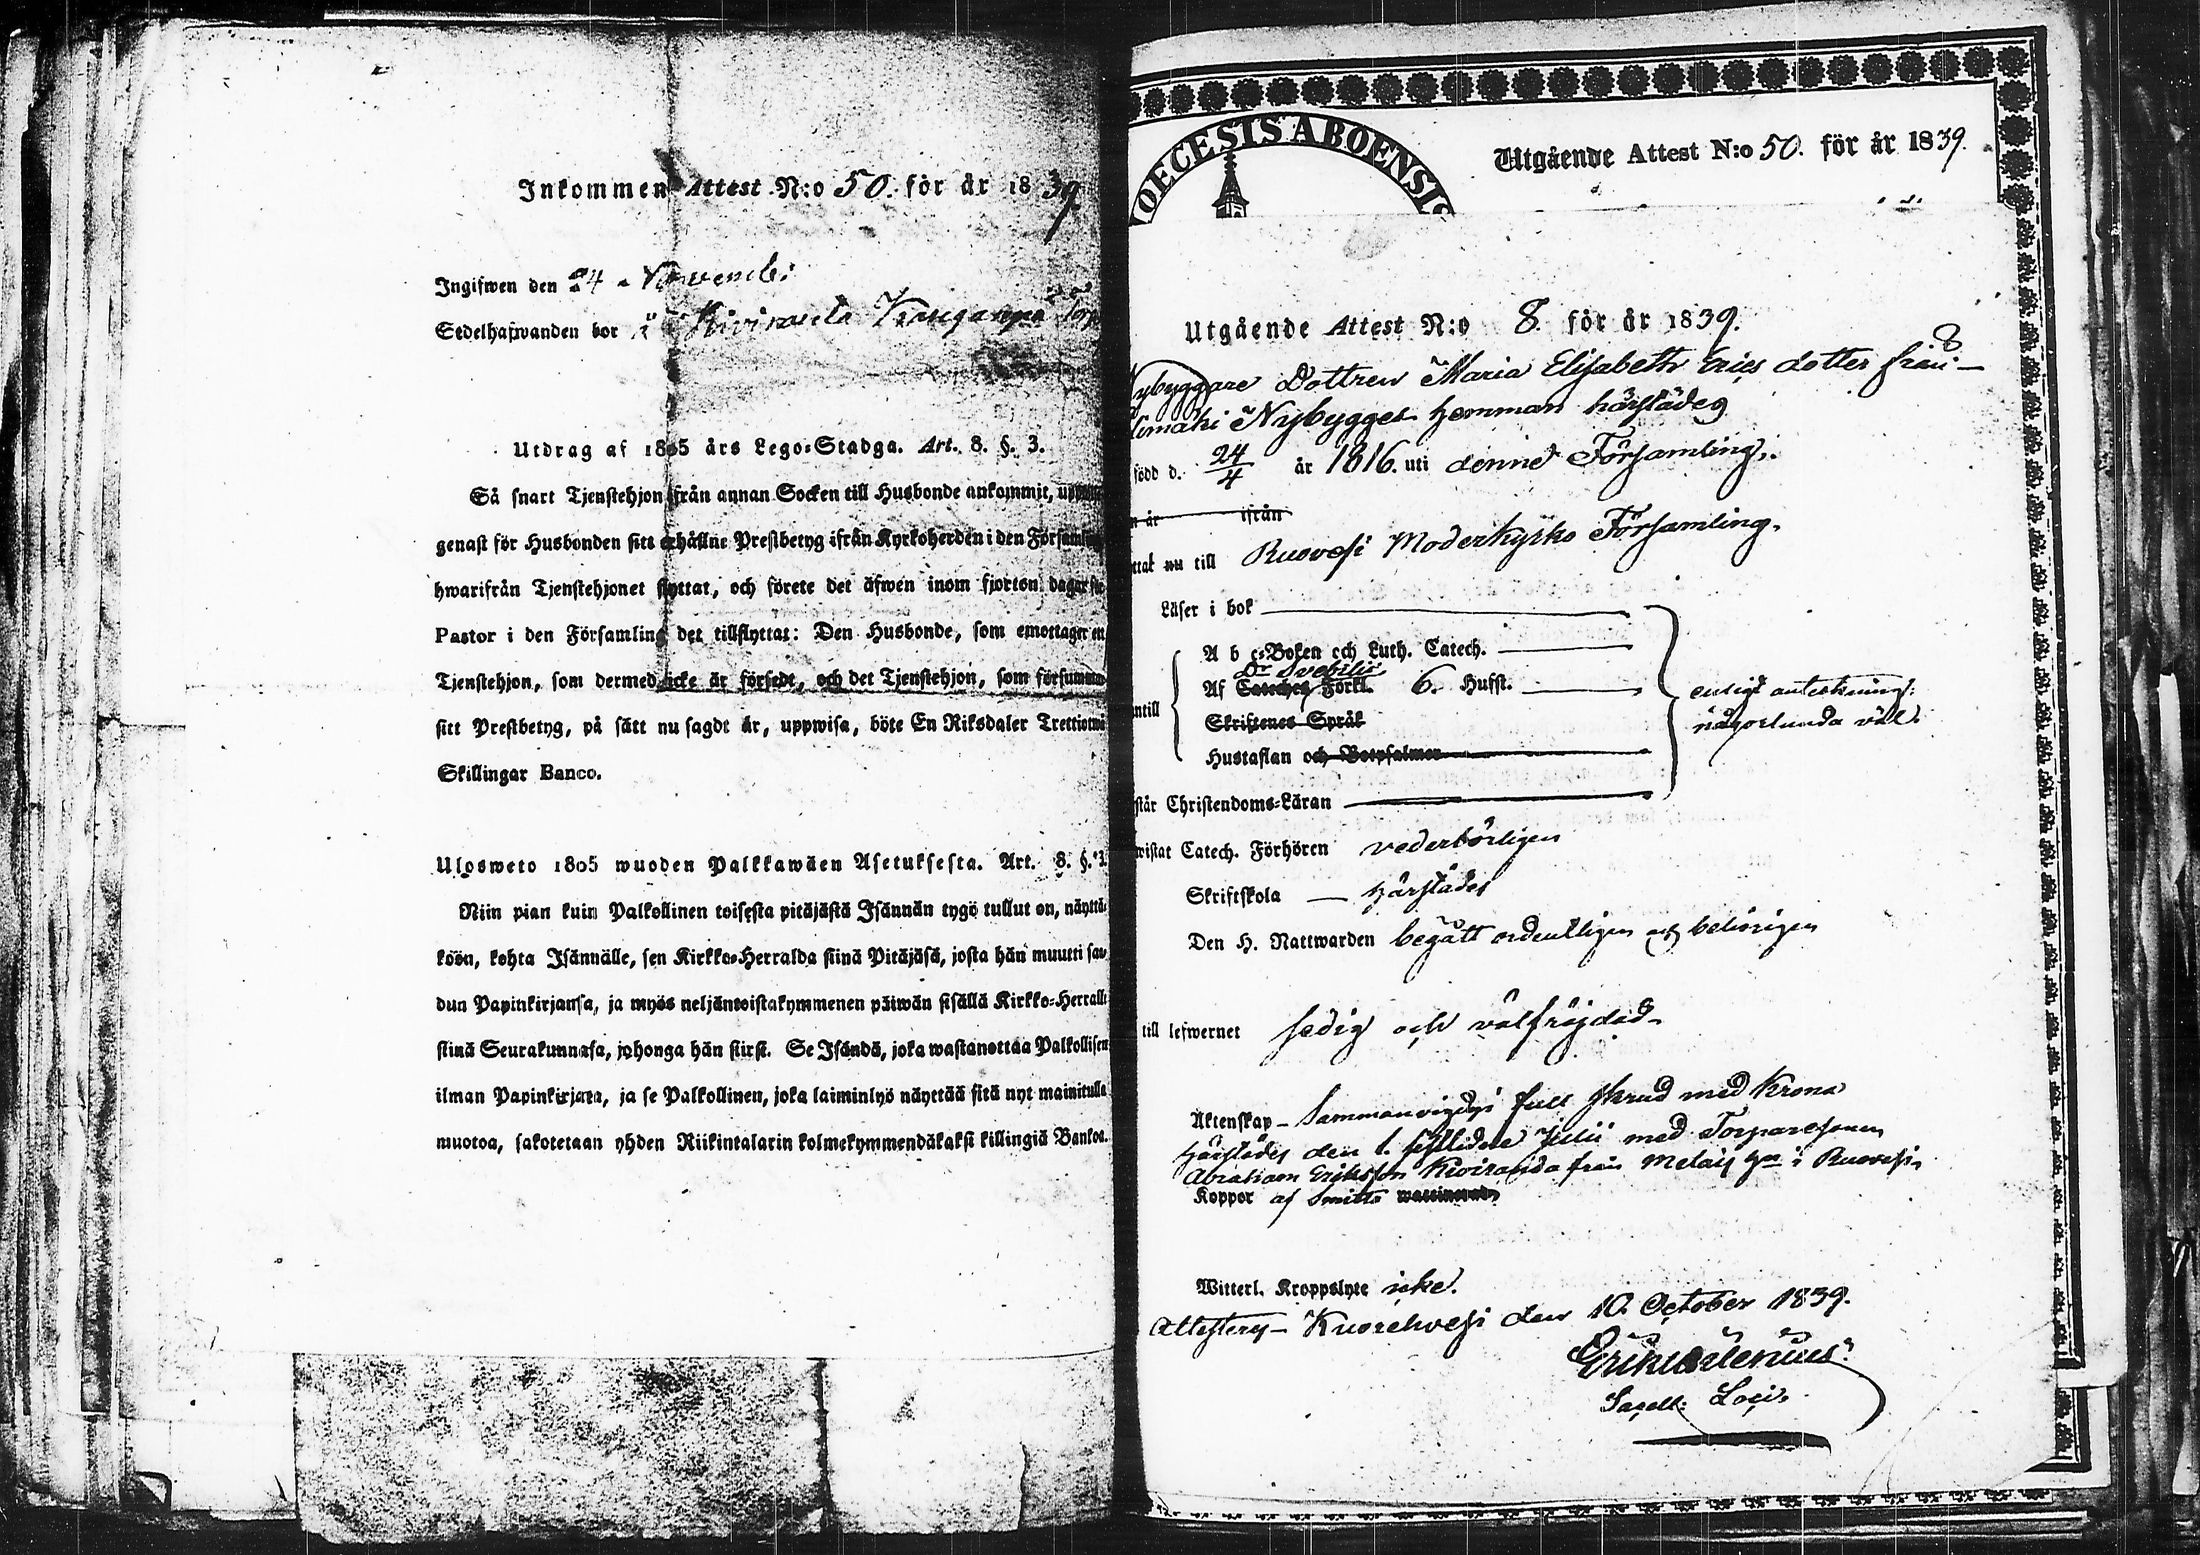 Inkommen Attest N:o 50. för år 1839.
Ingifwen den 24 Novemb:
Sedelhafwanden bor i Kiviranda
Utdrag af 1805 års Lego-Stadga. Art. 8. §. 3.
Så snart Tjenstehjon ifrån annan Socken till Husbonde ankommit,
genast för Husbonden sitt erhållne Prestbetyg ifrån Kyrkoherden i den Församling
hwarifrån Tjenstehjonet flyttat, och förete det äfwen inom fjorton dagar för
Pastor i den Församling det tillflyttat: Den Husbonde, som emottager ett
Tjenstehjon, som dermed icke är försedt, och det Tjenstehjon, som försumma
sitt Prestbetyg, på sätt nu sagdt är, uppwisa, böte En Riksdaler Trettiotwå
Skillingar Banco.
Ulosweto 1805 wuoden Palkkawäen Asetuksesta. Art. 8. §. 3.
Niin pian kuin Palkollinen toisesta pitäjästä Isännän tygö tullut on, näyttä-
köön, kohta Isännälle, sen Kirkko-Herralda siinä Pitäjäsä, josta hän muutti saa-
dun Papinkirjansa, ja myös neljäntoistakymmenen päiwän sisällä Kirkko-Herralle
siinä Seurakunnasa, johonga hän siirst. Se Isändä, joka wastanottaa Palkollisen
ilman Papinkirjata, ja se Palkollinen, joka laiminlyö näyttää sitä nyt mainitulla
muotoa, sakotetaan yhden Riikintalarin kolmekymmendäkaksi killingiä Bankoa.
DIOECESIS ABOENSIS
Utgående Attest N:o 50. för år 1839.
Utgående Attest N:o 8. för år 1839.
Nybyggare Dottren Maria Elisabeth Erics dotter från
Nybygges hemman härstädes
född d. 24/4 år 1816. uti denna Församling.
n år ifrån
ttat nu till Ruovesi Moderkyrko Församling.
Läser i bok
A b c-Boken och Luth. Catech.
Dr Svebilii
Af Cateches Förkl. 6. Hufst.
ntill
Skriftenes Språk
Hustaflan och Botpsalmer
enligt anteckning:
någorlunda väl.
står Christendoms-Läran
wistat Catech. Förhören vederbörligen
Skriftskola — härstädes
Den H. Nattwarden begått ordentligen och behörigen
till lefwernet sedig och välfräjdad
Äktenskap — Sammanvigdes i full skrud med Krona
härstädes den 1. sistlidne Julii med Torparesonen
Abraham Eriksson Kiviranda från i Ruovesi
Koppor af Smitto
Witterl. Kroppslyte icke.
Attestery — Kuorehvesi den 10. October 1839.
Erik
Sacell: Loci.